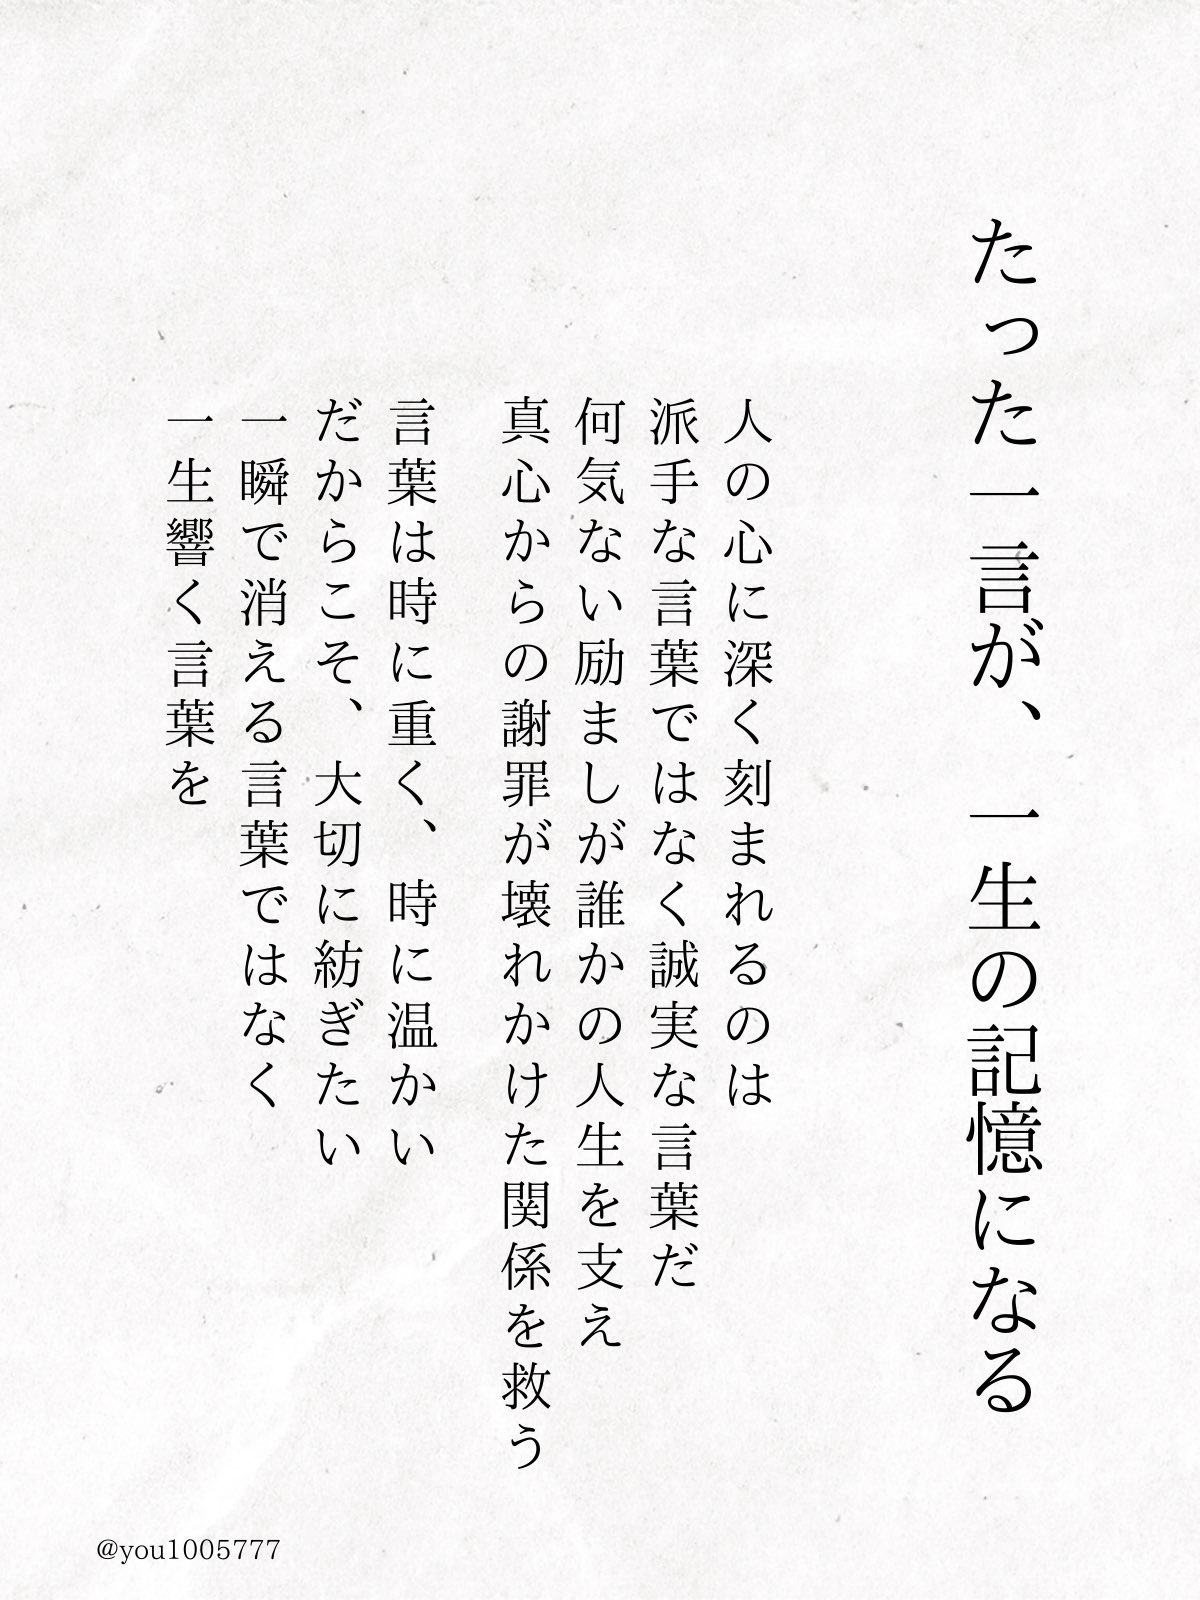 たった一言が、一生の記憶になる
人の心に深く刻まれるのは
派手な言葉ではなく誠実な言葉だ
何気ない励ましが誰かの人生を支え
真心からの謝罪が壊れかけた関係を救う
言葉は時に重く、時に温かい
だからこそ、大切に紡ぎたい
一瞬で消える言葉ではなく
一生響く言葉を
@you1005777